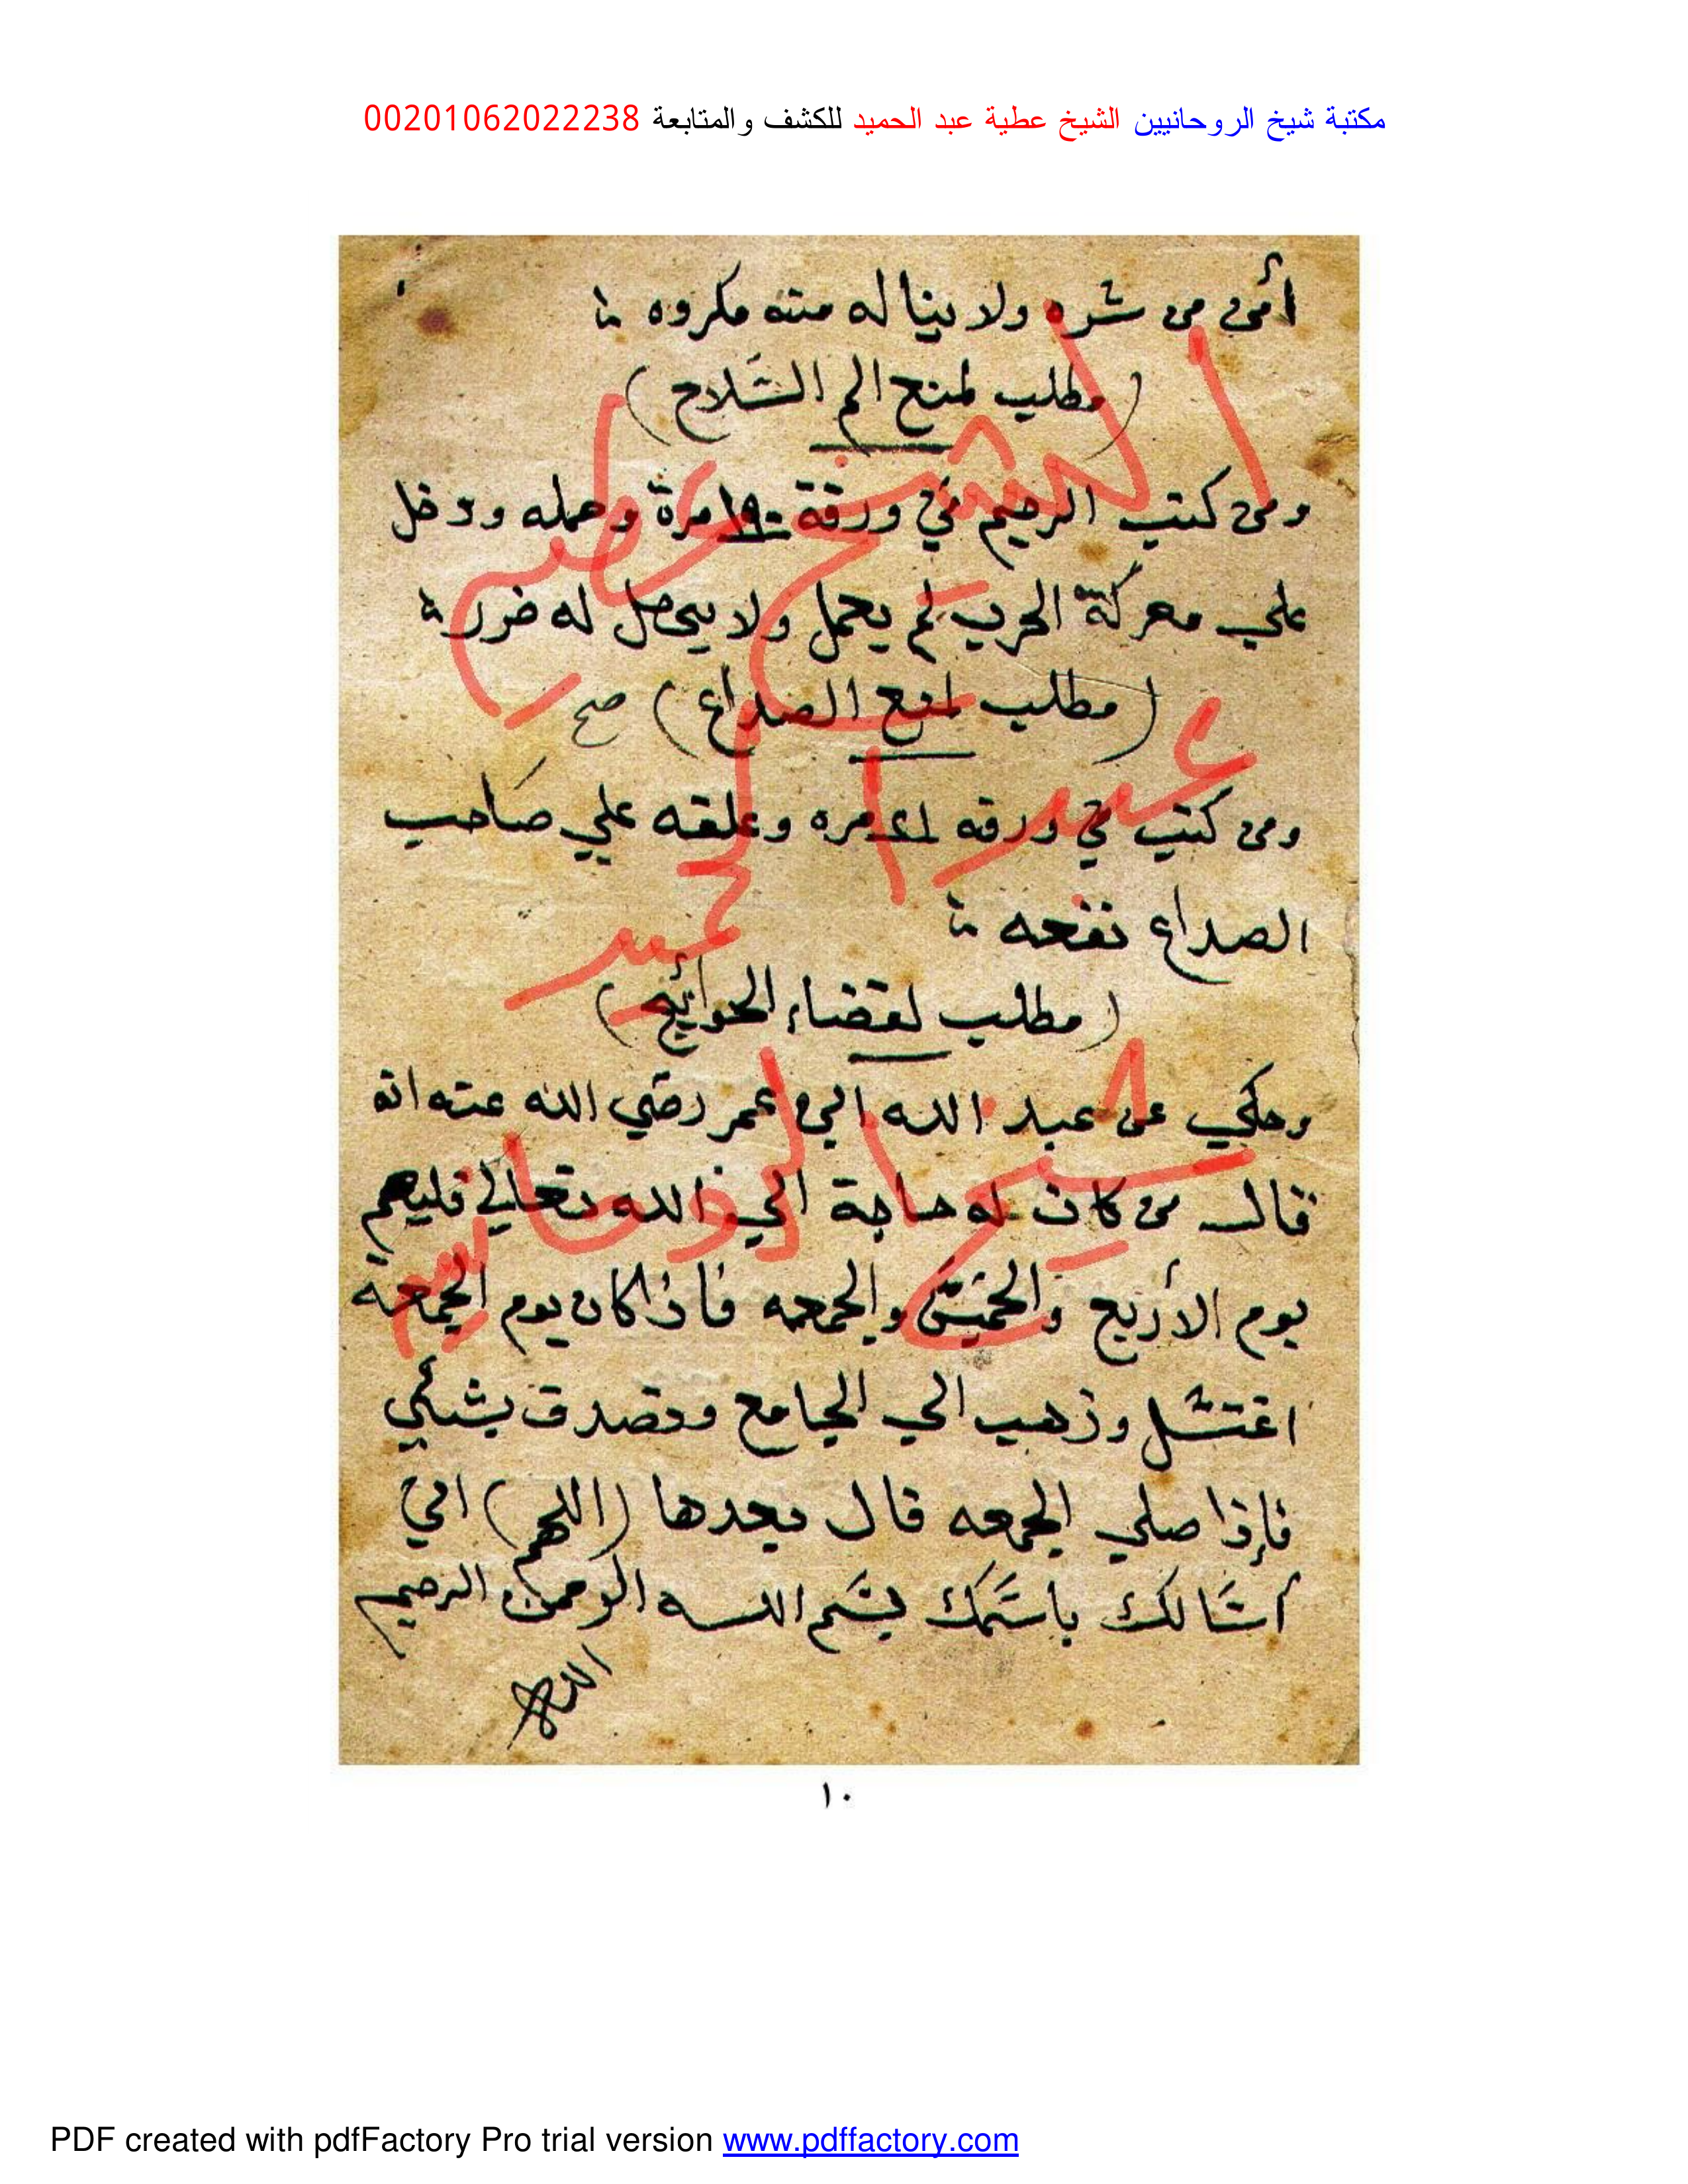 مكتبة شيخ الروحانيين الشيخ عطية عبد الحميد للكشف والمتابعة 00201062022238
أمن من شره ولا يناله منه مكروه
(مطلب لمنع الم السّلاح)
ومن كتب الرحيم في ورقة ١٩٠ مرة وحمله ودخل
علي معركة الحرب لم يعمل ولا يحصل له ضرر
(مطلب لمنع الصداع) صح
ومن كتب في ورقه ٢١ مره وعلقه علي صاحب
الصداع نفعه
(مطلب لقضاء الحوائج)
وحكي عن عبد الله ابن عمر رضي الله عنه انه
قال من كان له حاجة الي الله تعالي فليصم
يوم الأربع والخميس والجمعه فأذا كان يوم الجمعة
اغتسل وذهب الي الجامع وتصدق بشئي
فإذا صلي الجمعه قال بعدها (اللهم) اني
أسألك بأسمك بسم الله الرحمن الرحيم
الله
الشيخ عطيه
عبد الحميد
شيخ الروحانيين
١٠
PDF created with pdfFactory Pro trial version www.pdffactory.com